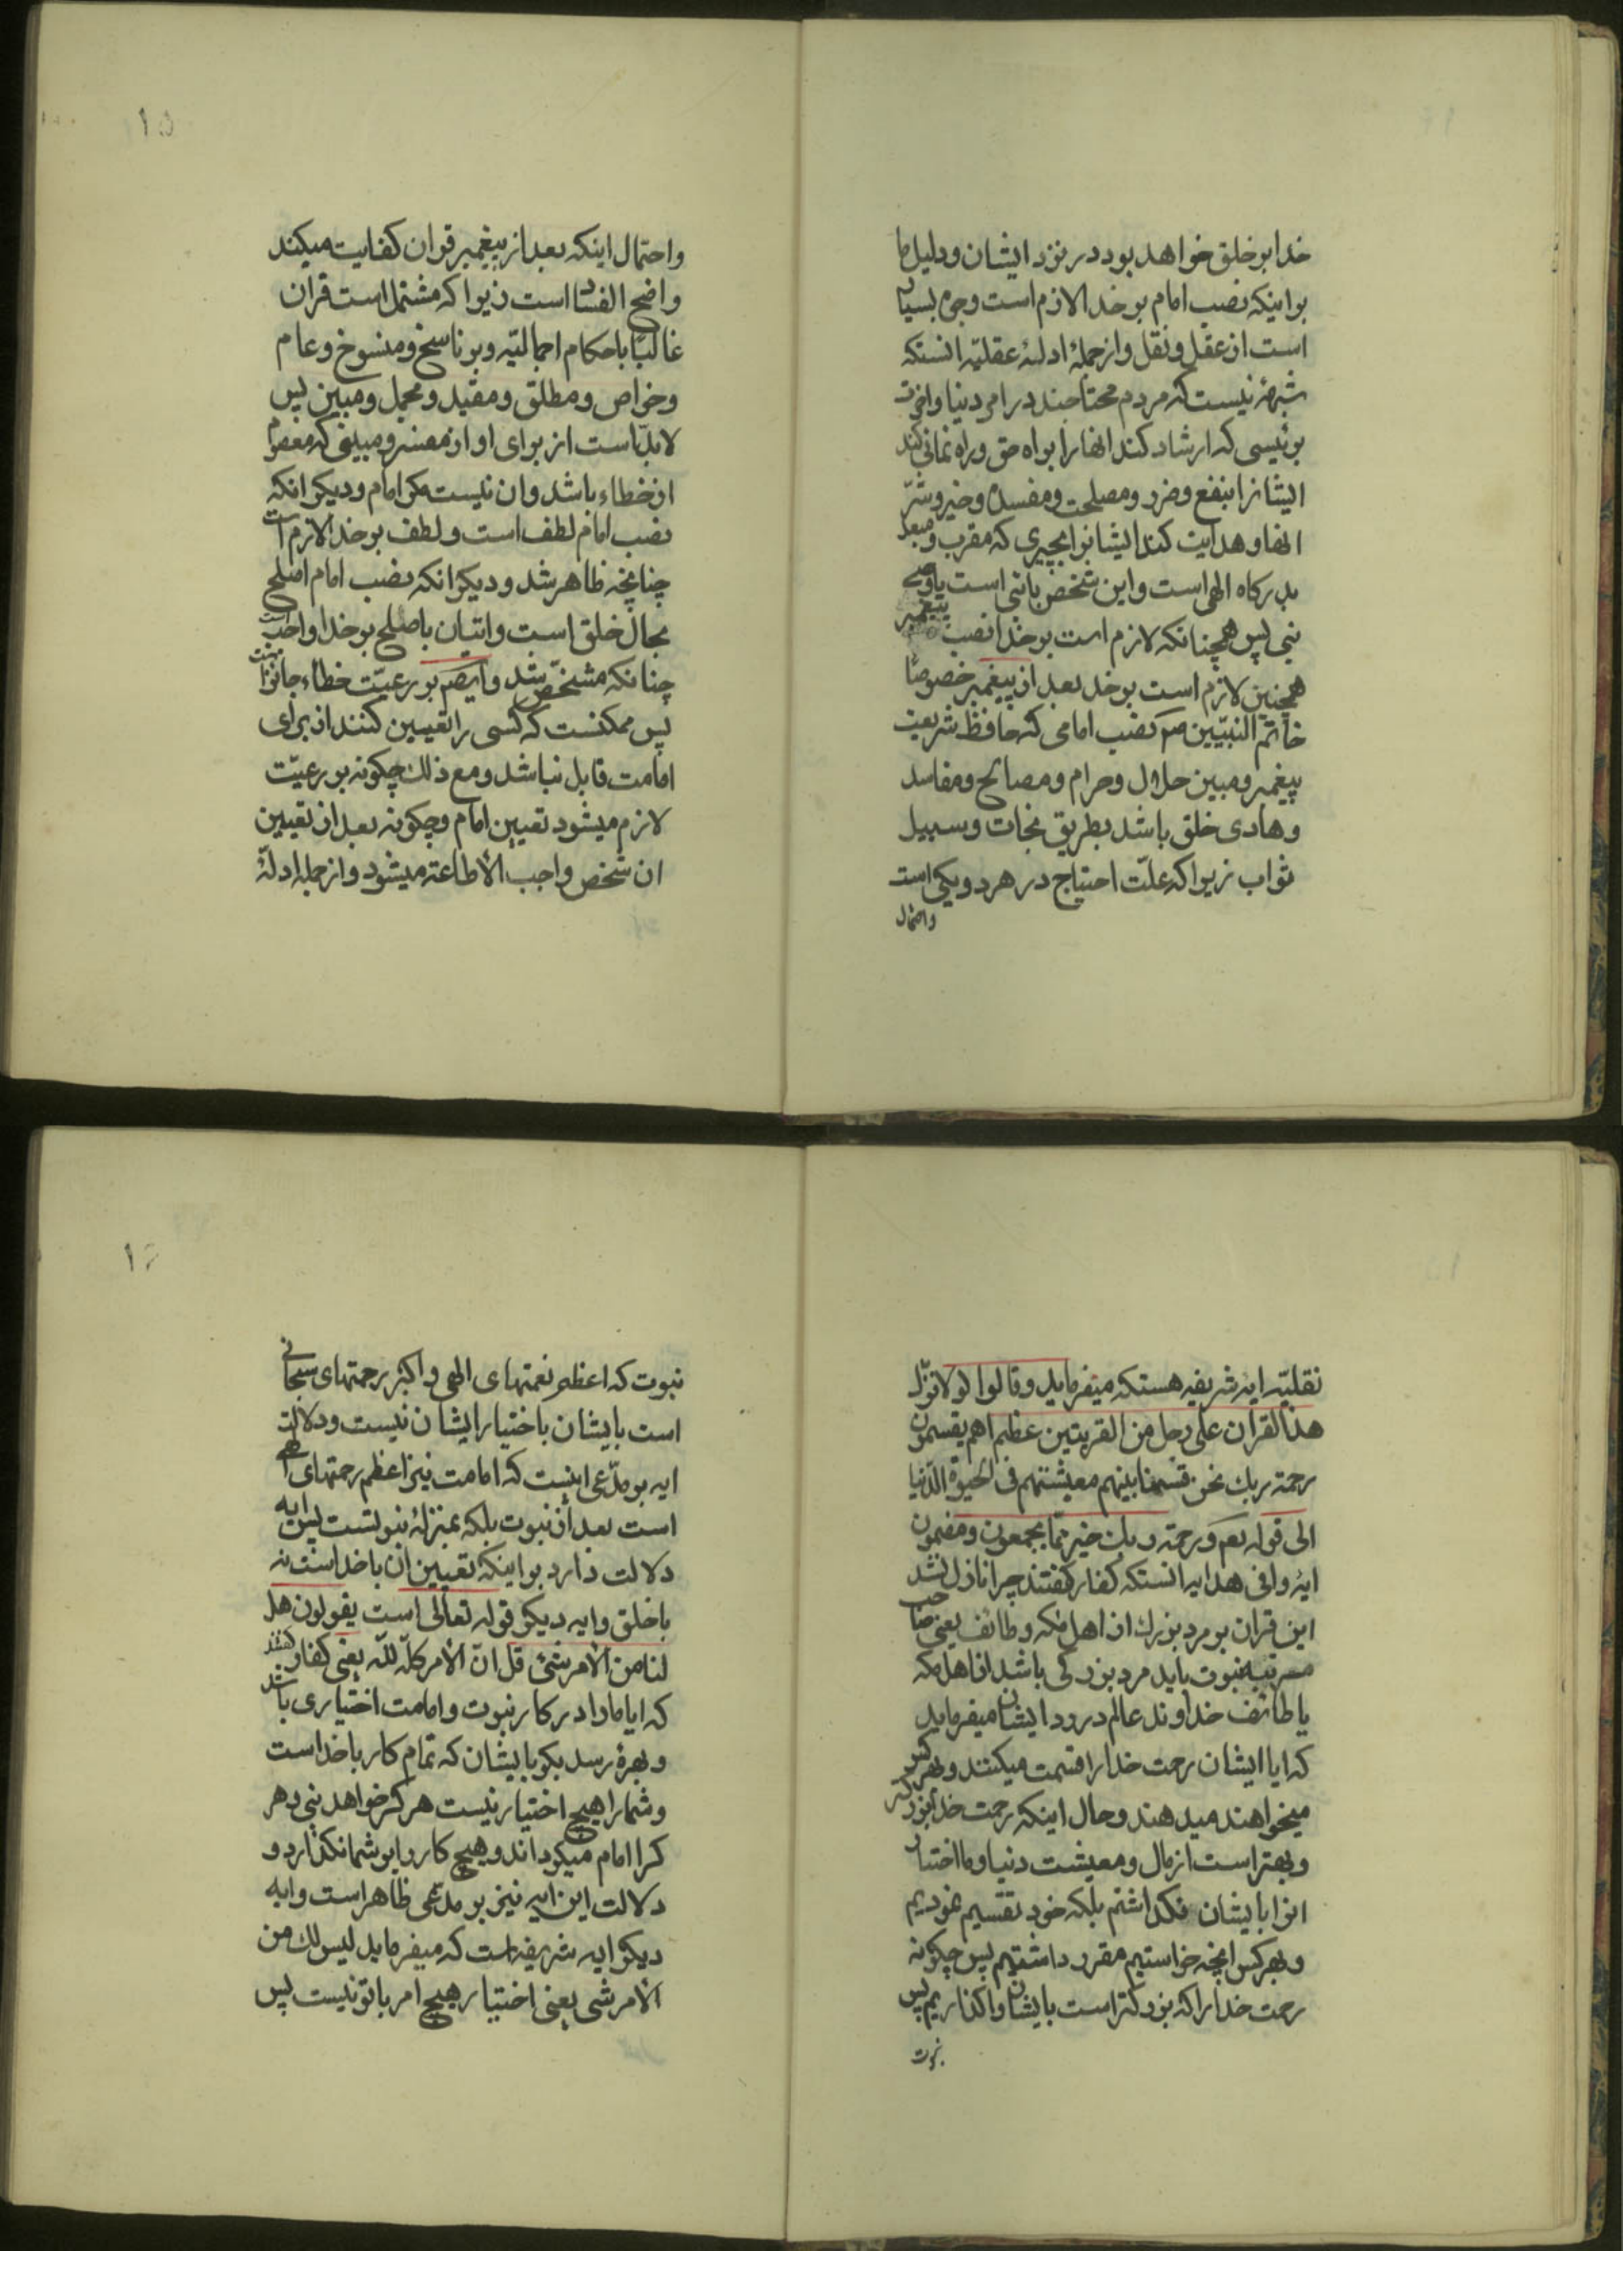 خدا بر خلق خواهد بود در نزد ایشان و دلیل ما
بر اینکه نصب امام بر خدا لازم است وجوه بسیار
است از عقل و نقل و از جملهٔ ادلهٔ عقلیّه انستکه
شبههٔ نیست که مردم محتاجند در امر دنیا و اخرت
برئیسی که ارشاد کند انها را براه حق و راه نمائی کند
ایشانرا بنفع و ضرر و مصلحت و مفسده و خیر و شرّ
انها و هدایت کند ایشانرا بچیزی که مقرب و مبعد
بدرکاه الهی است و این شخص یا نبی است یا وصی
نبی پس همچنانکه لازم است بر خدا نصب پیغمبر
همچنین لازم است بر خدا بعد از پیغمبر خصوصًا
خاتم النبیّین ص نصب امامی که حافظ شریعت
پیغمبر و مبین حلال و حرام و مصالح و مفاسد
و هادی خلق باشد بطریق نجات و سبیل
ثواب زیرا که علّت احتیاج در هر دو یکی است
واحتمال
۱۵
واحتمال اینکه بعد از پیغمبر قران کفایت میکند
واضح الفساد است زیرا که مشتمل است قران
غالبًا باحکام اجمالیّه و بر ناسخ و منسوخ و عام
و خواص و مطلق و مقید و مجمل و مبین پس
لابدّ است از برای او از مفسر و مبینی که معصوم
از خطاء باشد و ان نیست مکر امام و دیکر انکه
نصب امام لطف است و لطف بر خدا لازم است
چنانچه ظاهر شد و دیکر انکه نصب امام اصلح
بحال خلق است و اتیان باصلح بر خدا واجب است
چنانکه مشخّص شد و ایضم بر رعیّت خطاء جایز است
پس ممکنست که کسی را تعیین کنند از برای
امامت قابل نباشد و مع ذلك چکونه بر رعیّت
لازم میشود تعیین امام و چکونه بعد از تعیین
ان شخص واجب الأطاعة میشود و از جمله ادلّهٔ
نقلیّه ایه شریفه هستکه میفرماید و قالوا لولا نزّل
هذا القران علی رجل من القریتین عظیم اهم یقسمون
رحمة ربك نحن قسمنا بینهم معیشتهم فی الحیوة الدّنیا
الی قوله تعم و رحمة ربك خیر ممّا یجمعون و مضمون
ایهٔ وافی هدایه انستکه کفار کفتند چرا نازل نشد
این قران بر مرد بزرك از اهل مکه و طائف یعنی صاحب
مرتبه نبوت باید مرد بزرکی باشد از اهل مکه
یا طائف خداوند عالم در رد ایشان میفرماید
که ایا ایشان رحمت خدا را قسمت میکنند و بهر کس
میخواهند میدهند و حال اینکه رحمت خدا بزرکتر
و بهتر است از مال و معیشت دنیا و ما اختیار
انرا بایشان نکذاشتم بلکه خود تقسیم نمودیم
و بهر کس انچه خواستیم مقرر داشتیم پس چکونه
رحمت خدا را که بزرکتر است بایشان واکذاریم پس
نبوت
نبوت که اعظم نعمتهای الهی و اکبر رحمتهای سبحانی
است بایشان باختیار ایشان نیست و دلالت
ایه بر مدّعی اینست که امامت نیز اعظم رحمتهای الهی
است بعد از نبوت بلکه بمنزلهٔ نبوتست پس ایه
دلالت دارد بر اینکه تعیین ان با خداست نه
با خلق و ایه دیکر قوله تعالی است یقولون هل
لنا من الأمر شئ قل انّ الأمر کلّه للّه یعنی کفار کفتند
که ایا ما را در کار نبوت و امامت اختیاری باشد
و بهرهٔ رسد بکو بایشان که تمام کار با خداست
و شما را هیچ اختیار نیست هر کرا خواهد نبی و هر
کرا امام میکرداند و هیچ کار را بر شما نکذارد و
دلالت این ایه نیز بر مدّعی ظاهر است و ایه
دیکر ایه شریفه است که میفرماید لیس لك من
الأمر شی یعنی اختیار هیچ امر با تو نیست پس